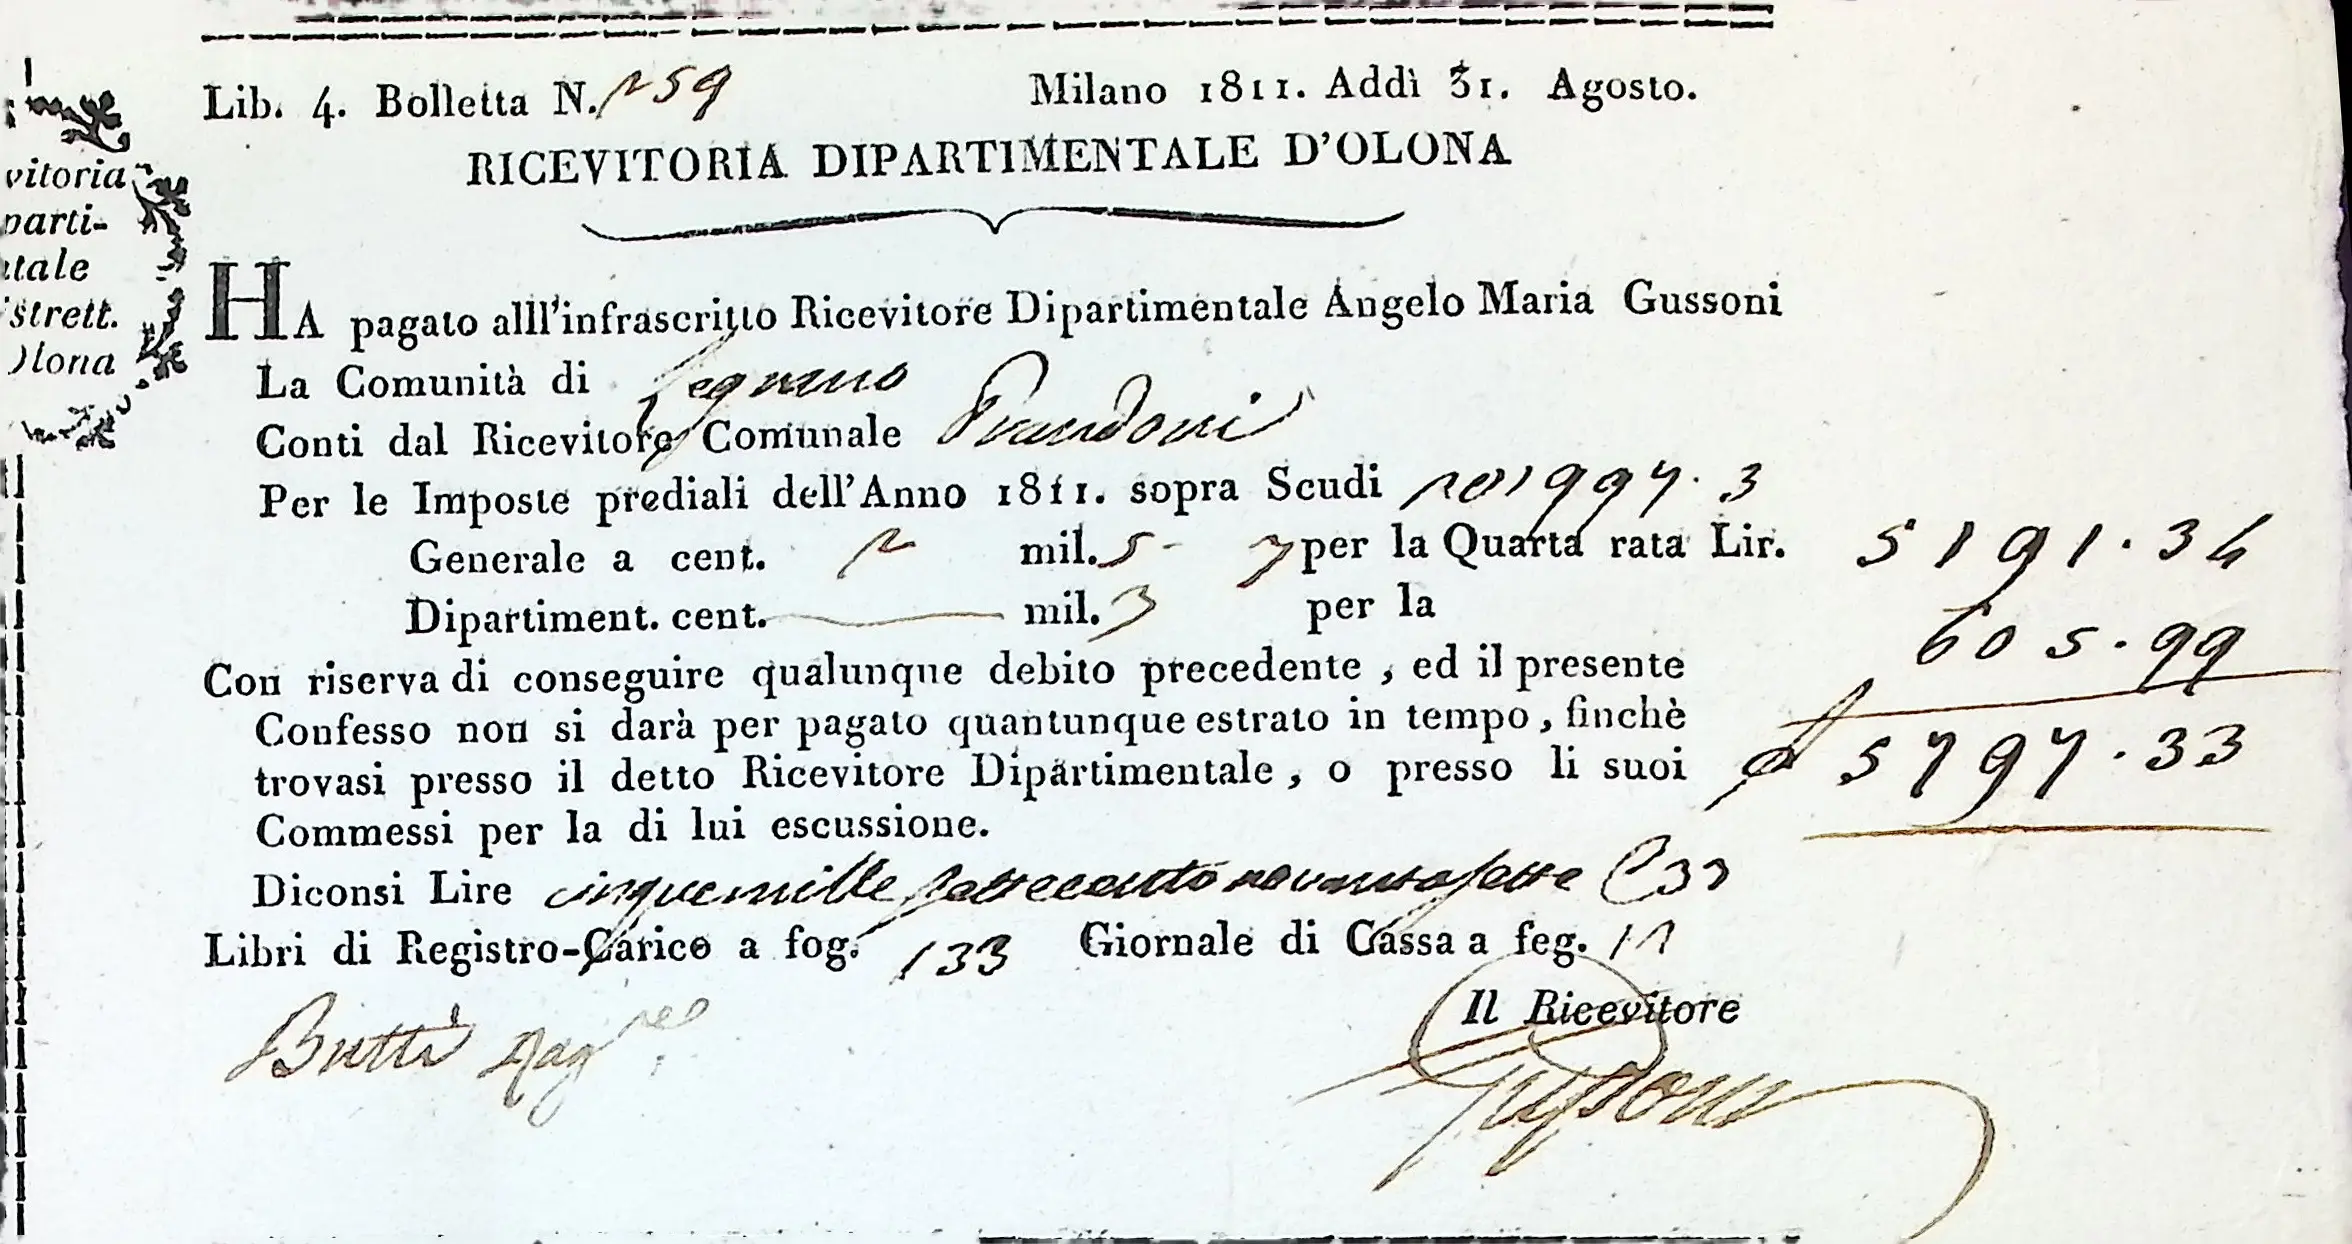 Lib. 4. Bolletta N. 259 Milano 1811. Addì 31. Agosto.
RICEVITORIA DIPARTIMENTALE D'OLONA
vitoria
parti-
tale
strett.
lona
HA pagato alll'infrascritto Ricevitore Dipartimentale Angelo Maria Gussoni
La Comunità di Legnano
Conti dal Ricevitore Comunale Prandoni
Per le Imposte prediali dell'Anno 1811. sopra Scudi 201997.3
Generale a cent. 2 mil. 5 - 7 per la Quarta rata Lir. 5191.34
Dipartiment. cent. mil. 3 per la 605.99
Con riserva di conseguire qualunque debito precedente, ed il presente
Confesso non si darà per pagato quantunque estrato in tempo, finchè
trovasi presso il detto Ricevitore Dipartimentale, o presso li suoi 5797.33
Commessi per la di lui escussione.
Diconsi Lire cinquemille settecento novantasette C 33
Libri di Registro-Carico a fog. 133 Giornale di Cassa a feg.
Il Ricevitore
Buttì Rag.re Gussoni